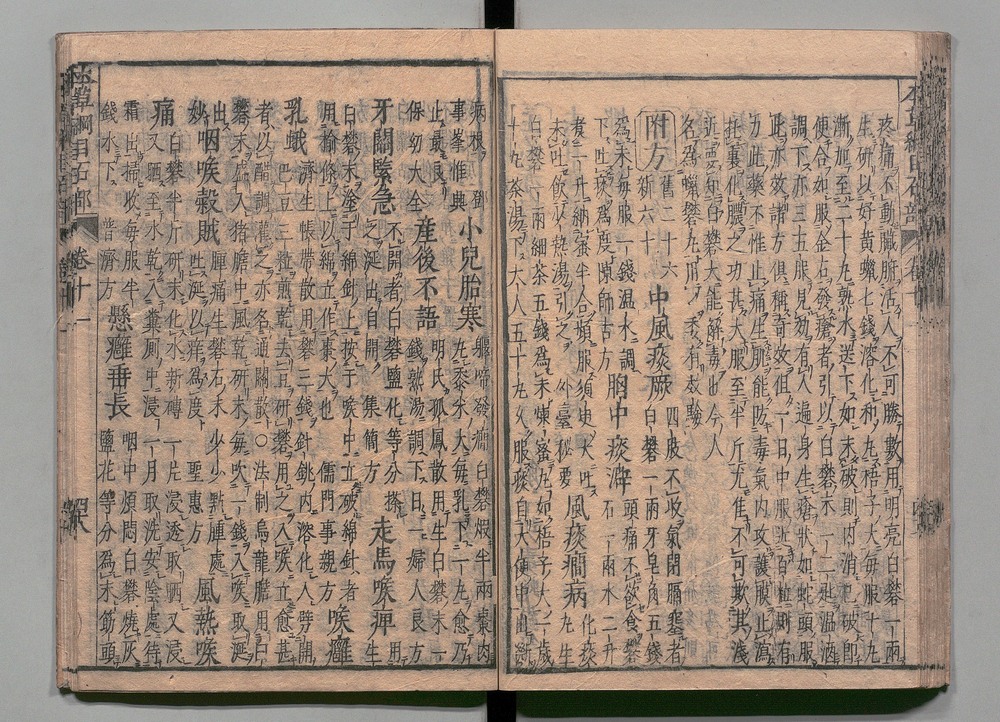 疼痛不動臟腑活人不可勝數用明亮白礬一兩
生研以好黃蠟七錢溶化和丸梧子大每服十丸
漸加至二十丸熟水送下如未破則內消已破即
便合如服金石發瘡者引以白礬末一二匙温酒
調下亦三五服見効有人遍身生瘡狀如蛇頭服
此亦效諸方俱稱奇效但一日中服近百粒則有
力此藥不惟止痛生肌能防毒氣內攻護膜止瀉
托裏化膿之功甚大服至半斤尤佳不可欺其淺
近要知白礬大能解毒也今人
名為蠟礬丸用之委有效驗
附方舊二十六新六十 中風痰厥四肢不收氣閉膈塞者白礬一兩牙皂角五錢
為末每服一錢温水調下吐痰為度陳師古方 胸中痰澼頭痛不欲食礬石一兩水二升
煮一升納蜜半合頓服須臾大吐未吐飲少熱湯引之外臺秘要 風痰癇病化痰丸生
白礬一兩細茶五錢為末煉蜜丸如梧子大一歲十丸茶湯下大人五十丸久服痰自大便中出斷
病根鄧筆峯 小兒胎寒躽啼發癇白礬煅半兩棗肉丸黍米大每乳下一丸愈乃
止最良保幼大全 産後不語胡氏孤鳳散用生白礬末一錢熟湯調下日一婦人良方
牙關緊急不開者白礬鹽花等分搽之涎出自開集簡方 走馬喉痹用生
白礬末塗于綿針上按于喉中立破綿針者用榆條上以綿纏作棗大也儒門事親方 喉癰
乳蛾濟生帳帶散用礬三錢鐵銚內溶化入劈開巴豆三粒煎乾去豆研礬用之入喉立愈甚
者以醋調灌之亦名通關散○法制烏龍膽用白礬末盛入猪膽中風乾研末每吹一錢入喉取涎
出妙 咽喉穀賊腫痛生礬石末少少點腫處吐涎以痒為度聖惠方 風熱喉
痛白礬半斤研末化水新磚一片浸透取晒又浸又晒至水乾入糞厠中浸一月取洗安陰處待
霜出掃收每服半錢水下普濟方 懸癰垂長咽中煩悶白礬燒灰鹽花等分為末筯頭
本草綱目石部 卷十一